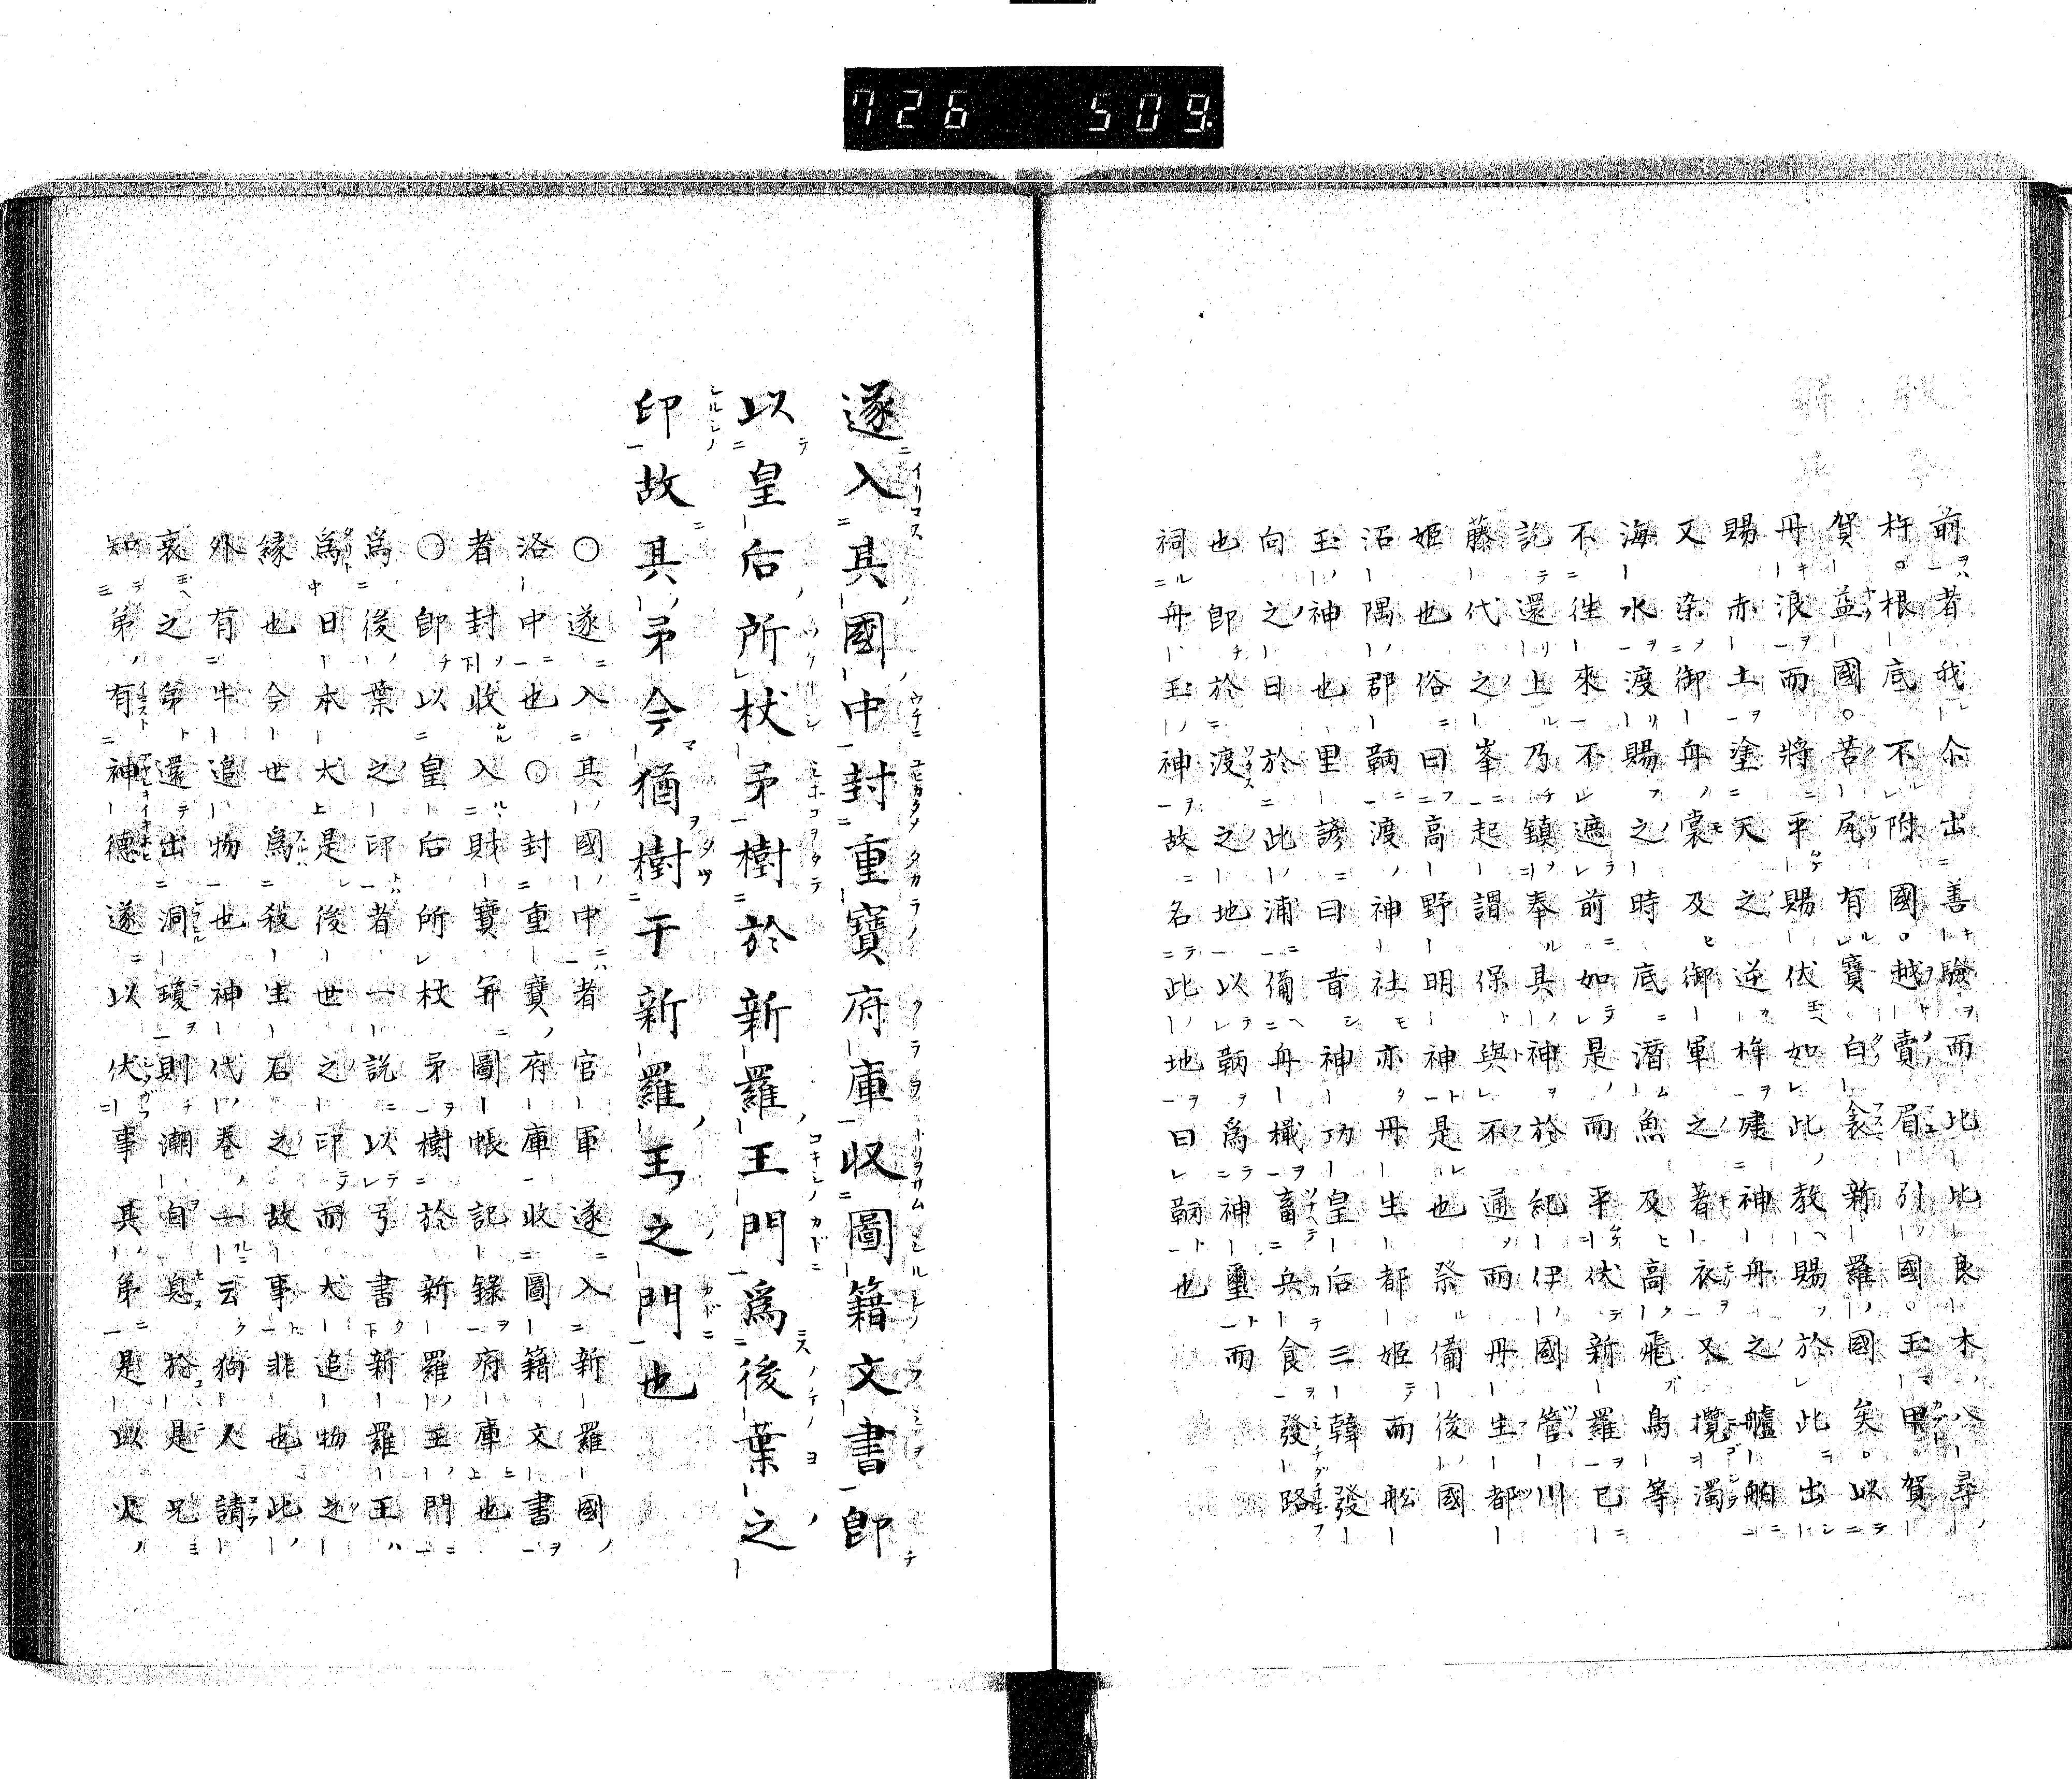 726 509
前者我令出善驗而此比良木八尋
杵。根底不附國。越賣眉引國。玉甲。賀
賀益國。苦尻有寶白衾新羅國矣。以
丹浪而將平賜伏如此教賜於此出
賜赤土塗天之逆桙建神舟之艫舳
又染御舟裳及御軍之著衣又攪濁
海水渡賜之時底潛魚及高飛鳥等
不徃來不遮前如是而平伏新羅已
訖還上乃鎮奉其神於紀伊國管川
藤代之峯起謂保與不通而丹生都
姬也俗曰高野明神是也祭備後國
沼隅郡鞆渡神社亦丹生都姬而舩
玉神也里諺曰昔神功皇后三韓發
向之日於此浦備舟檝畜兵食發路
也卽於渡之地以鞆爲神璽而
祠舟玉神故名此地曰鞆也
遂入其國中封重寶府庫收圖籍文書卽
以皇后所杖矛樹於新羅王門爲後葉之
印故其矛今猶樹于新羅王之門也
○遂入其國中者官軍遂入新羅國
洛中也○封重寶府庫收圖籍文書
者封收入財寶并圖帳記錄府庫也
○卽以皇后所杖矛樹於新羅王門
爲後葉之印者一說以弓書新羅王
爲日本犬是後世之印而犬追物之
緣也今世爲殺生石之故事非也此
外有牛追物也神代卷一云狗人請
哀之弟還出洞瓊則潮自息於是兄
知弟有神德遂以伏事其弟是以火